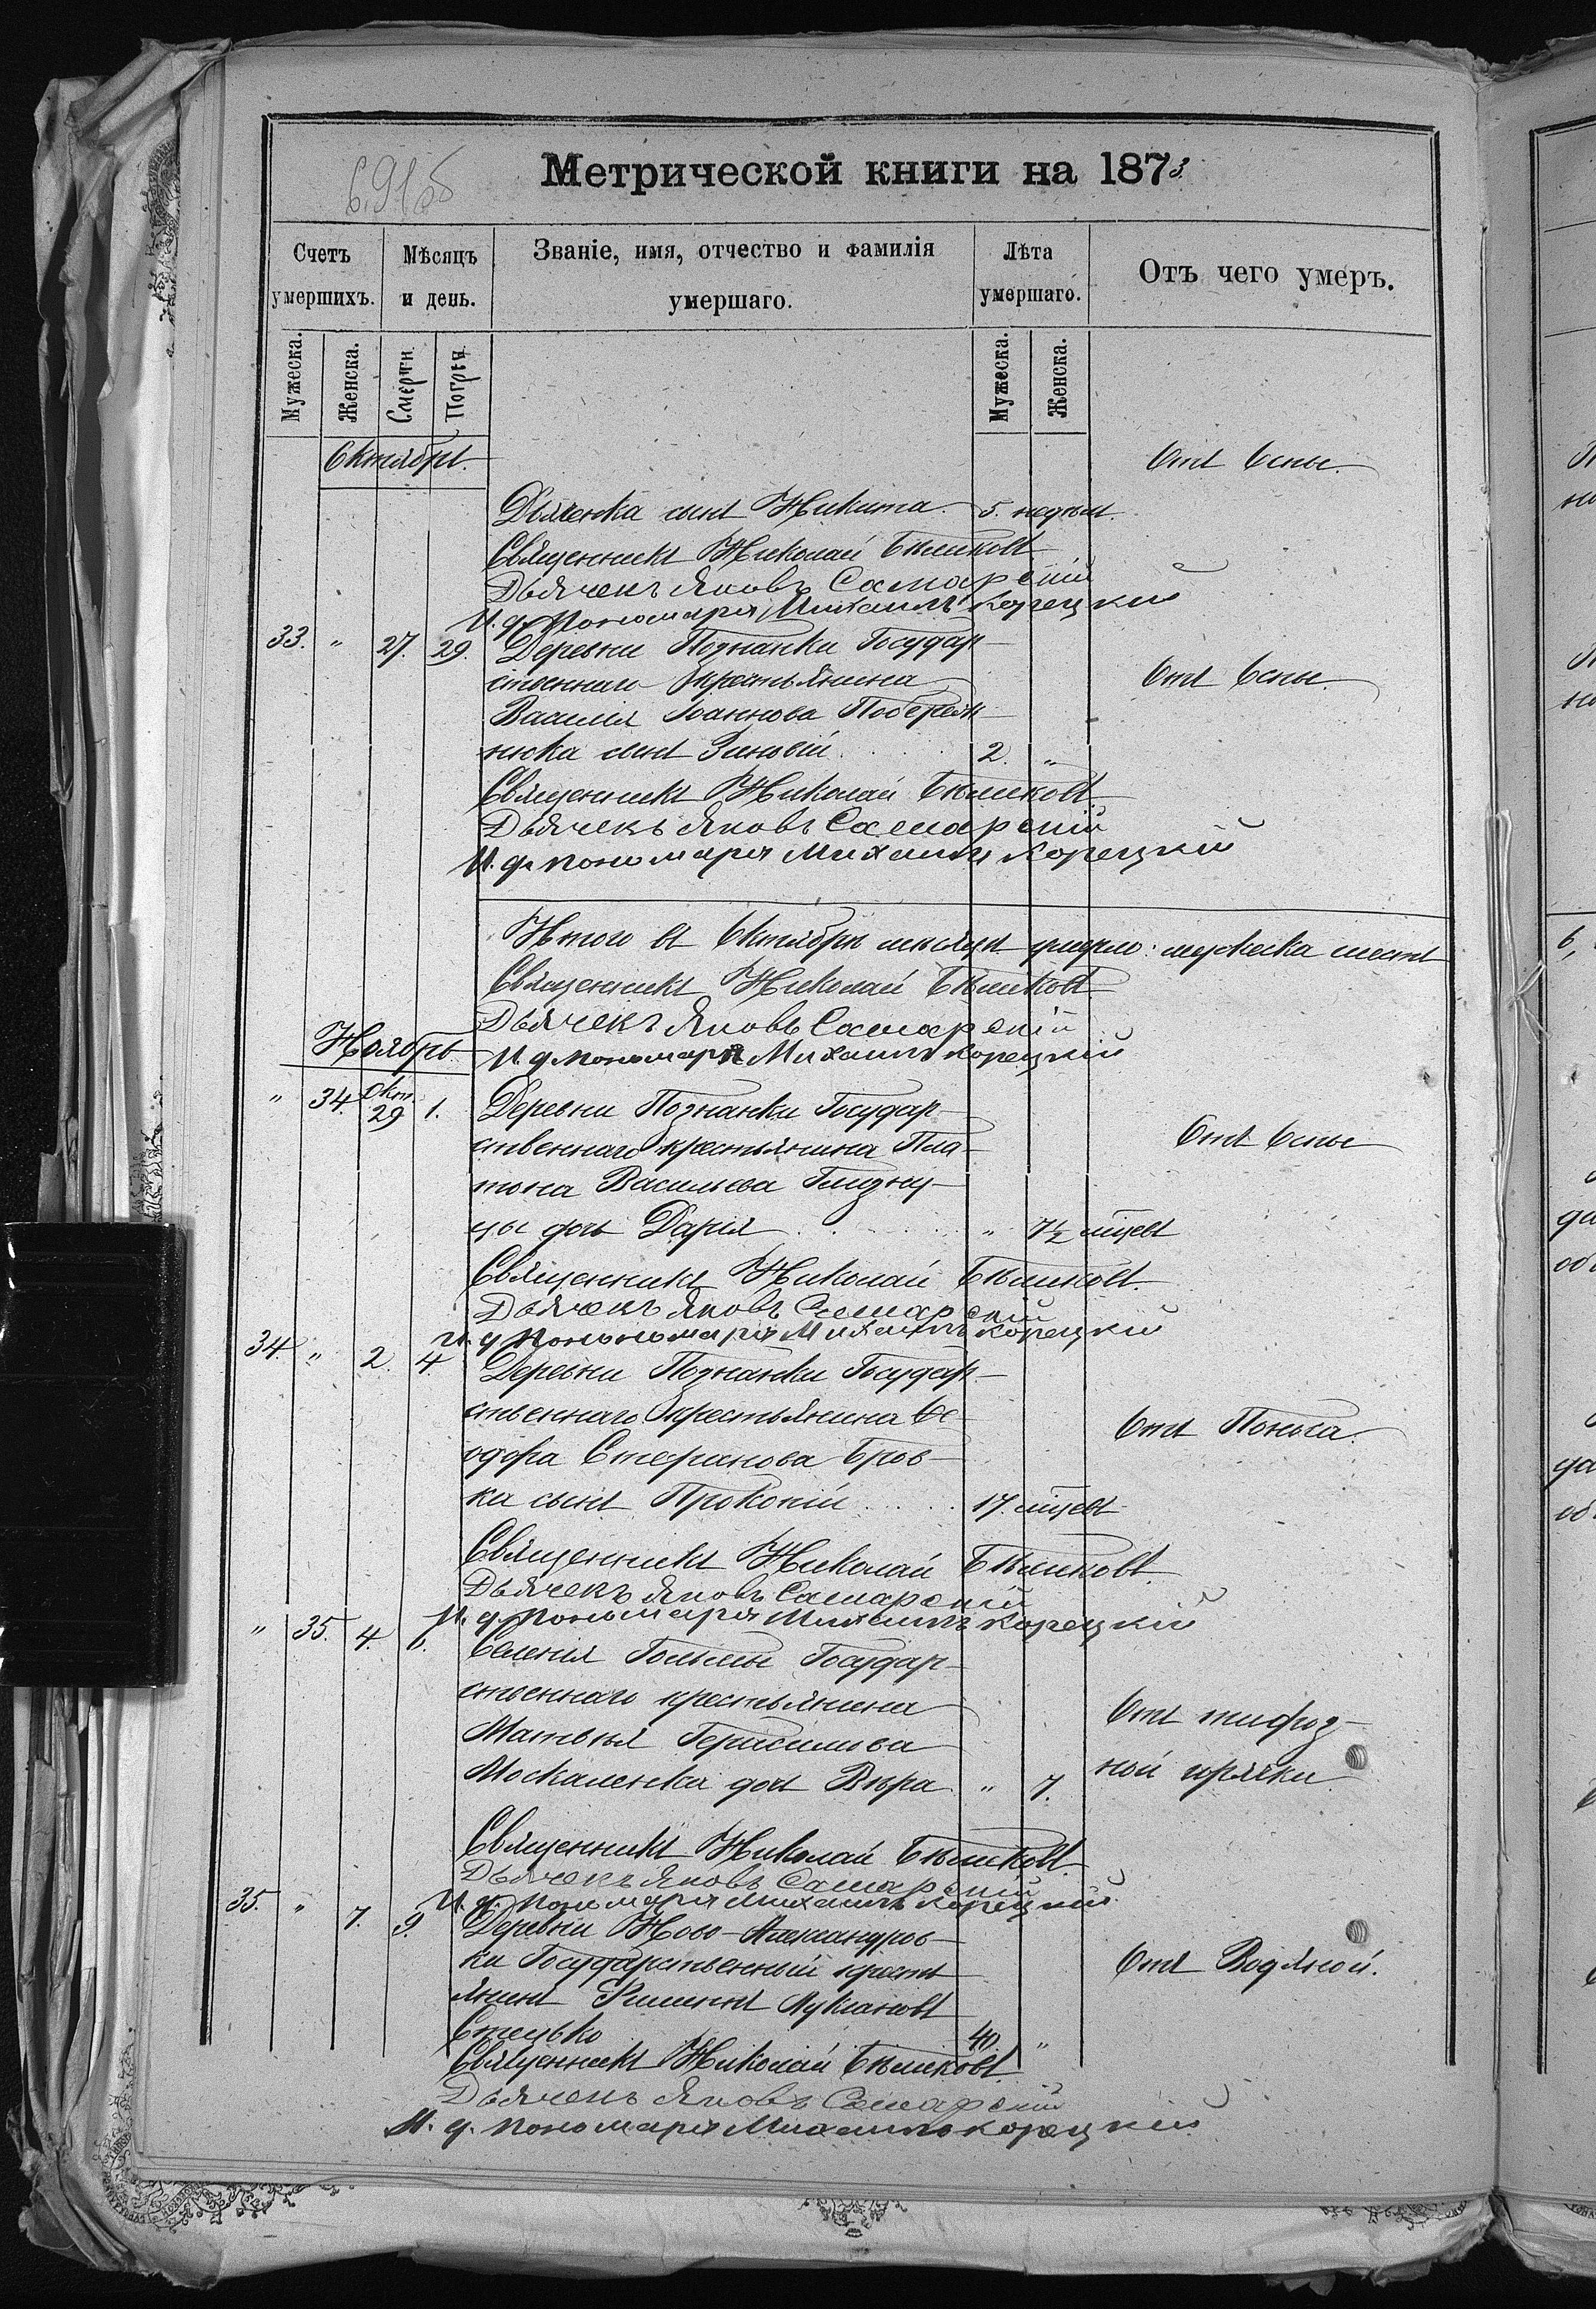 691об
Метрической книги на 1873
Счетъ умершихъ.
Мѣсяцъ и день.
Званіе, имя, отчество и фамилія умершаго.
Лѣта умершаго.
Отъ чего умеръ.
Мужеска.
Женска.
Смерти
Погреб
Мужеска.
Женска.
Октябрь.
Отъ Оспы.
Дьяченка сынъ Никита 5. недѣл.
Священникъ Николай Бѣликовъ
Дьячекъ Яковъ Самарскій
И. д. Пономаря Михаилъ Корецкій
33. " 27. 29. Деревни Познанки Государ-
ственнаго крестьянина Отъ Оспы.
Василія Іоаннова Побереж-
нюка сынъ Зиновій 2. "
Священникъ Николай Бѣликовъ
Дьячекъ Яковъ Самарскій
И. д. пономаря Михаилъ Корецкій
Итого въ Октябрѣ мѣсяцѣ умерло: мужеска шесть
Священникъ Николай Бѣликовъ
Дьячекъ Яковъ Самарскій
Ноябрь
И. д. пономаря Михаилъ Корецкій
" 34. Окт. 29 1. Деревни Познанки Государ-
ственнаго крестьянина Пла- Отъ Оспы
тона Васильева
цы дочь Дарія " 7½ мѣсц
Священникъ Николай Бѣликовъ.
Дьячекъ Яковъ Самарскій
И. д. Пономаря Михаилъ Корецкій
34. " 2. 4. Деревни Познанки Государ-
ственнаго крестьянина Ѳе- Отъ Поноса.
одора Стефанова Бров-
ка сынъ Прокопій 17. мѣсц
Священникъ Николай Бѣликовъ.
Дьячекъ Яковъ Самарскій
И. д. Пономаря Михаилъ Корецкій
" 35. 4. 6. Селенія Гольмы Государ-
ственнаго крестьянина Отъ тифоз-
Матвѣя Герасимова
Москаленка дочь Вѣра " 7. ной горячки
Священникъ Николай Бѣликовъ.
Дьячекъ Яковъ Самарскій
И. д. Пономаря Михаилъ Корецкій
35. " 7. 9. Деревни Ново-Александров-
ки Государственный кресть- Отъ Водяной.
янинъ Филиппъ Лукіановъ
Стецько 40. "
Священникъ Николай Бѣликовъ.
Дьячекъ Яковъ Самарскій
И. д. пономаря Михаилъ Корецкій